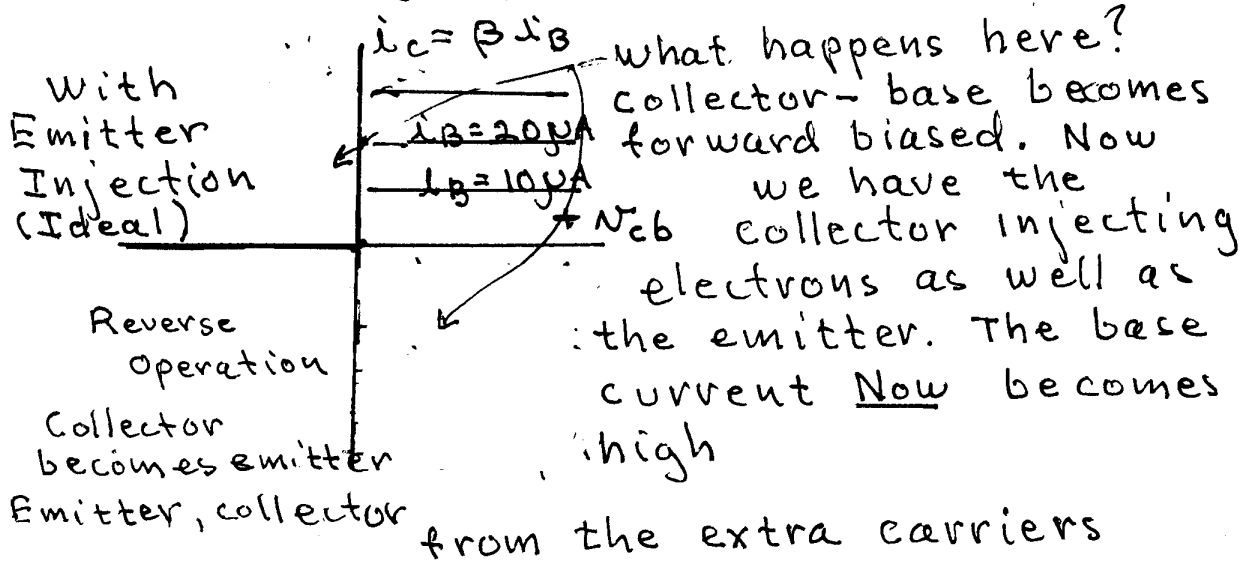 i_c = β i_B
With
Emitter
Injection
(Ideal)
i_B = 20 μA
i_B = 10 μA
+ v_cb
Reverse
Operation
Collector
becomes emitter
Emitter, collector
what happens here?
collector - base becomes
forward biased. Now
we have the
collector injecting
electrons as well as
the emitter. The base
current Now becomes
high
from the extra carriers